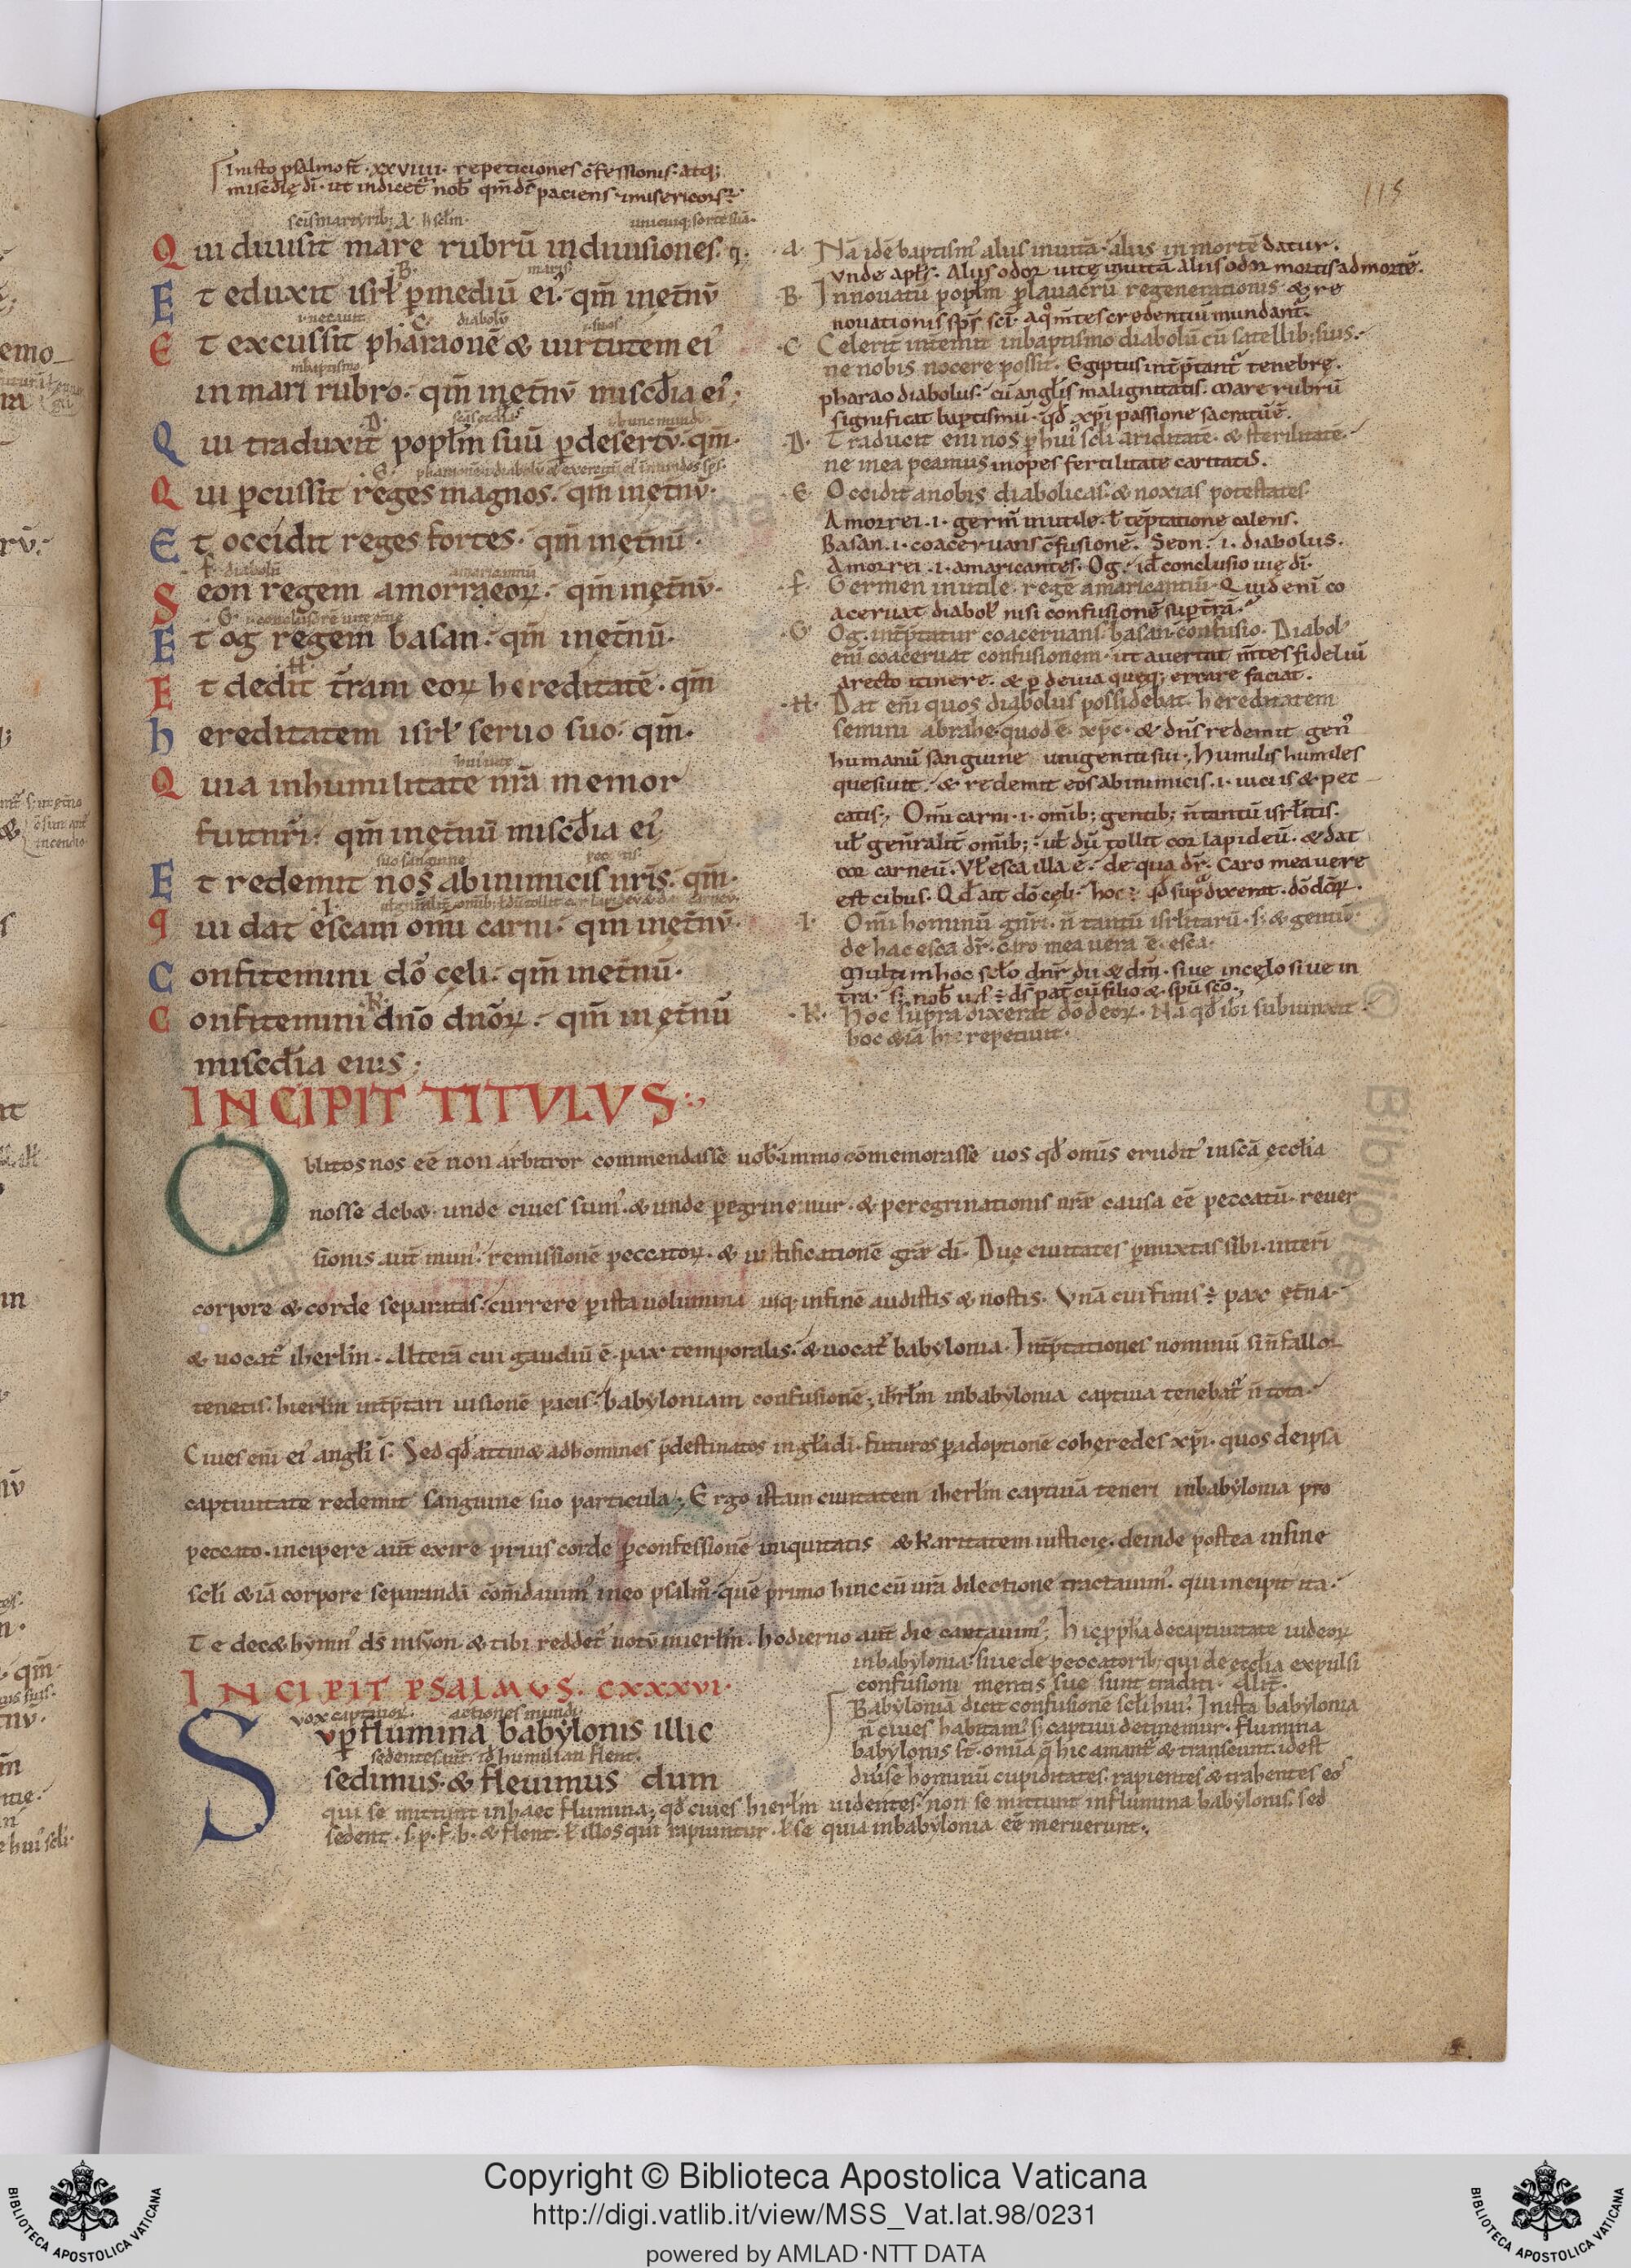 In isto psalmo st̄ · xxviiii · repeticiones c̄fessionis · atq;
mis̄cdię dī · ut indicet᷒ nob̄ qm̄ ds̄ paciens · misericors ·
115
Qui diuisit mare rubrū in diuisiones · q ·
Et eduxit isrł p mediū ei᷒ · qm̄ in ęt̄nū
· i · necauit diabolū · i · suos
Et excussit pharaonē & uirtutem ei᷒
in baptismo
in mari rubro · qm̄ in ęt̄nū misc̄dia ei᷒ ;
Qui traduxit popłm suū p desertū · qm̄ ·
Qui pcussit reges magnos · qm̄ in ęt̄nū ·
Et occidit reges fortes · qm̄ in ęt̄nū ·
F · diabolū amaricantiū
Seon regem amorraeoꝝ · qm̄ in ęt̄nū ·
Et og regem basan · qm̄ in ęt̄nū ·
H
Et dedit t̄ram eoꝝ hereditatē · qm̄
hereditatem isrł seruo suo · qm̄ ·
Quia in humilitate nr̄a memor
fuit nr̄i · qm̄ in ęt̄nū misc̄dia ei᷒
suo sanguine
Et redemit nos ab inimicis nr̄is · qm̄ ·
qui dat escam om̄i carni · qm̄ in ęt̄nū ·
Confitemini dō cęli · qm̄ in et̄nū ·
K
Confitemini dn̄o dn̄oꝝ · qm̄ in ęt̄nū
misc̄dia eius ;
· A · Nā idē baptism᷒ aliis in uitā · aliis in mortē datur ·
Vnde apłs · Aliis odor uitę in uitā aliis odor mortis ad mortē ·
· B · Innouatū popłm p lauacrū regenerationis & re
nouationis sp̄s sc̄i · aq̄ m̄tes credentiū mundant᷒ ·
· C · Celerit̄ int̄emit in baptismo diabolū cū satellib; suis ·
ne nobis nocere possit · Egiptus int̄ptant᷒ tenebrę ·
pharao diabolus · cū anglis malignitatis · Mare rubrū
significat baptismū · qd̄ xp̄i passione sacratū ē ·
· D · Traducit eni nos p hui᷒ scłi ariditatē · & sterilitatē ·
ne in ea peamus inopes fertilitate caritatis ·
· E · Occidit a nobis diabolicas · & noxias potestates ·
Amorrei · i · germ̄ inutile · ł tēptatione calens ·
Basan · i · coaceruans c̄fusionē · Seon · i · diabolus ·
Amorrei · i · amaricantes · Og · id̄ conclusio uię dī ·
· F · Germen inutile · regē amaricantiū · Quid enī co
aceruat diabol᷒ nisi confusionē sup t̄rā ·
· G · Og · int̄ptatur coaceruans · basan · confusio · Diabol᷒
enī coaceruat confusionem · ut auertat m̄tes fideliū
a recto itinere · & p deuia queq; errare faciat ·
· H · Dat enī quos diabolus possidebat · hereditatem
semini abrahę · quod ē · xp̄c · & dn̄s redemit gen᷒
humanū sanguine unigeniti sui · Humilis humiles
quesiuit · & redemit eos ab inimicis · i · uiciis & pec
catis ; Om̄i carni · i · omīb; gentib; n̄ tantū isrłitis ·
uł gen̄ralit̄ omīb; · uł dū tollit cor lapideū · & dat
cor carneū · Vł esca illa ē · de qua dr̄ · Caro mea uere
est cibus · Qd̄ ait dō cęli · hoc ÷ qd̄ supᵃ dixerat · dō dōꝝ ·
· I · Om̄i hominū gn̄ri · n̄ tantū isrłitarū · s; & gentiū ·
de hac esca dr̄ · caro mea uera ē esca ·
Multi in hoc scło dn̄r dii & dn̄i · siue in cęlo siue in
t̄ra · s; nob̄ un᷒ ÷ ds̄ pat̄ cū filio & sp̄u sc̄o ·
· K · Hoc supra dixerat dō deoꝝ · Nā qd̄ ibi subiunxit ·
hoc &iā hic repetiuit ·
INCIPIT TITVLVS ·
Oblitos nos eē non arbitror commendasse uob̄ immo cōmemorasse uos qd̄ omīs erudit᷒ in sc̄a ęccłia
nosse deb& · unde ciues sum᷒ · & unde pegrinemur · & peregrinationis nr̄ę causa eē peccatū · reuer
sionis aut̄ mun᷒ remissionē peccatoꝝ · & iustificationē gr̄ę dī · Duę ciuitates pmixtas sibi · interi
corpore & corde separatas · currere p ista uolumina usq; in finē audistis & nostis · Vnā cui finis ÷ pax ęt̄na ·
& uocat᷒ iherłm · Alterā cui gaudiū ē pax temporalis · & uocat᷒ babylonia · Int̄ptationes nominū si n̄ fallor
tenetis · hierłm int̄ptari uisionē pacis · babyloniam confusionē ; ihrłm in babylonia captiua tenebat᷒ n̄ tota ·
Ciues enī ei᷒ angłi s̄ · Sed qd̄ attin& ad homines p̄destinatos in głā dī · futuros p adoptionē coheredes xp̄i · quos de ipsa
captiuitate redemit sanguine suo particula ; Ergo istam ciuitatem iherłm captiuā teneri in babylonia pro
peccato · incipere aut̄ exire prius corde p confessionē iniquitatis & karitatem iusticię · deinde postea in fine
scłi &iā corpore separandā cōm̄dauim᷒ in eo psalmᵒ · quē primo hinc cū ur̄a dilectione tractauim᷒ · qui incipit ita ·
Te dec& hymn᷒ ds̄ in syon · & tibi reddet᷒ uotū in ierłm · hodierno aut̄ die cantauim᷒ ; Hic pph̄ia de captiuitate iudeoꝝ
in babylonia · siue de peccatorib; qui de eccłia expulsi
confusioni mentis suę sunt traditi · Alit̄ ·
INCIPIT PSALMVS · CXXXVI ·
Vox captiuoꝝ actiones mundi
Svp flumina babylonis illic
sedimus · & fleuimus dum
Babyloniā dicit confusionē scłi hui᷒ · In ista babylonia
n̄ ciues habitam᷒ s; captiui detinemur · flumina
babylonis st̄ · omīa q̄ hic amant᷒ & transeunt · idest
diuise hominū cupiditates · rapientes & trahentes eos
qui se mittunt in haec flumina ; qd̄ ciues hierłm uidentes · non se mittunt in flumina babylonis · sed
sedent · s · p · f · b · & flent · ł illos qui rapiuntur · ł se quia in babylonia eē meruerunt ·
Copyright © Biblioteca Apostolica Vaticana
http://digi.vatlib.it/view/MSS_Vat.lat.98/0231
powered by AMLAD·NTT DATA
BIBLIOTECA APOSTOLICA VATICANA
BIBLIOTECA APOSTOLICA VATICANA